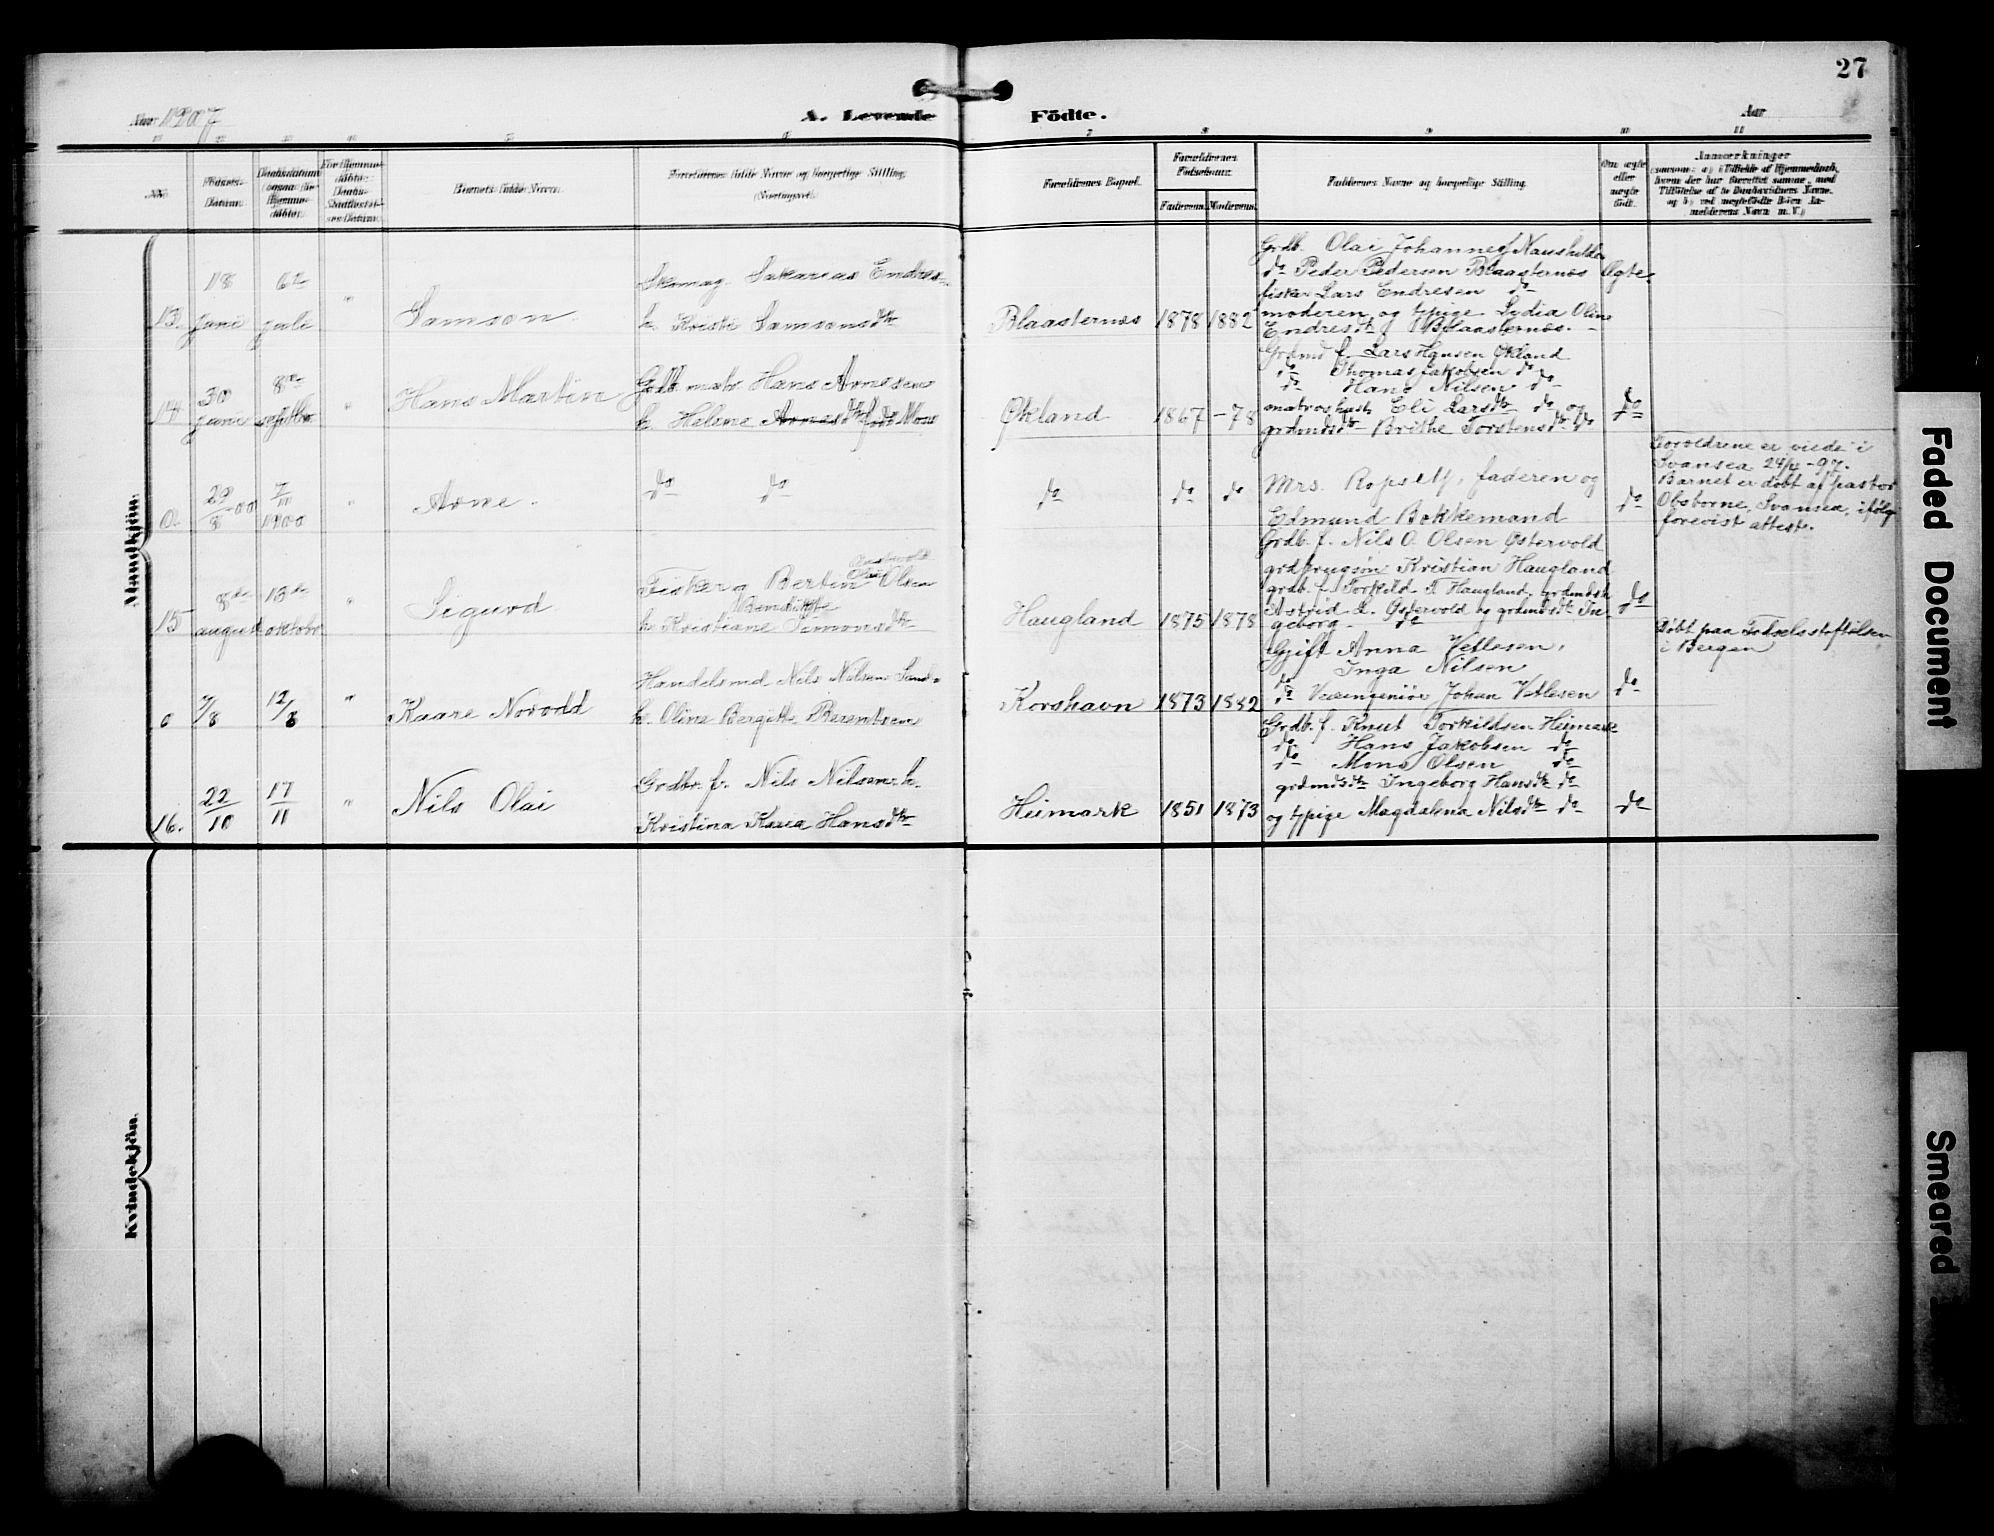 27
Aar 1907
A. Levende Födte.
Aar
7 8 9 10 11
No.
Fødsels-
Datum.
Barnets fulde Navn.
Forældrenes fulde Navne og borgerlige Stilling.
Forældrenes Bopæl.
Forældrenes
Fødselsaar.
Faderens. Moderens.
Faddernes Navne og borgerlige Stilling.
Om ægte
eller
uægte
født.
Anmærkninger
Mandkjön.
13. 18 juni 6te juli " Samson.
Skomag. Sakarias Endres-
h. Kristi Samsonsdtr
Blaasternæs 1878 1882
Grdb. Olai Johannes Naushilder
do Peder Pedersen Blaasternæs
fisker Lars Endresen do
moderen og tjpige Lydia Olin
Endresdt Blaasternæs.
Ægte
14. 30 juni 8de septbr " Hans Martin
Grdb. matr. Hans Arnesen
h. Helene Arnesdtr Mons
Økland 1867 -78
Grdmd f. Lars Hansen Økland
do Thomas Jakobsen do
do Hans Nilsen do
matroshust. Eli Larsdtr do og
grdmdsdtr Brithe Torstensdtr do
do
0. 29/8-00 7/11 1900 " Arne.
do do
do do do
Mrs. Ropself, faderen og
Edmund Bokkemand
do
Forældrene er viede i
Svansea 24/4-97.
Barnet er døbt af pastor
Obsborne, Svansea, ifølg
forevist attest.
15 8de august 13de oktobr " Sigurd
Fisker og Bertin Olai Olsen
h. Kristiane Bendikte Simonsdtr
Haugland 1875 1878
Grdb. f. Nils O. Olsen Østervold
grdbrugsøn Kristian Haugland
grdb. f. Torkild T Haugland, grdmdsh
Astrid L. Østervold og grdmdsdtr In-
geborg do
do
0 9/8 12/8 " Kaare Norodd
Handelsmd Nils Nilsen Sand-
h. Oline Bergitte Berentsen
Korshavn 1873 1882
Gjift Anna Vetlesen,
do Inga Nilsen
do Veiingeniør Johan Vetlesen
do
Døbt paa Fødselsstiftelsen
i Bergen
16. 22/10 17/11 " Nils Olai
Grdbr. f. Nils Nilsen h.
Kristina Karia Hansdtr
Heimark 1851 1873
Grdb. f. Knut Torkildsen Heimark
do Hans Jakobsen do
do Mons Olsen do
grdmdsdtr Ingeborg Hansdtr do
og tjpige Magdalena Nilsdtr do
do
Kvindekjön.
Faded Document
Smeared